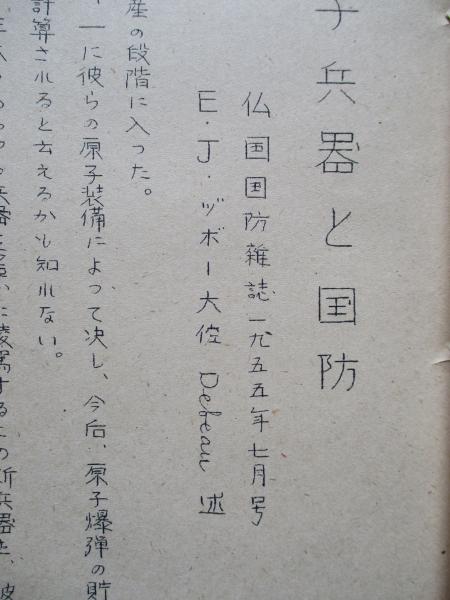 子兵器と国防
仏国国防雑誌一九五五年七月号
E・J・ヅボー大佐 Debeau 述
産の段階に入った。
一に彼らの原子装備によって決し、今后、原子爆弾の貯
計算されると云えるかも知れない。
兵器を遥かに凌駕するこの新兵器を、彼